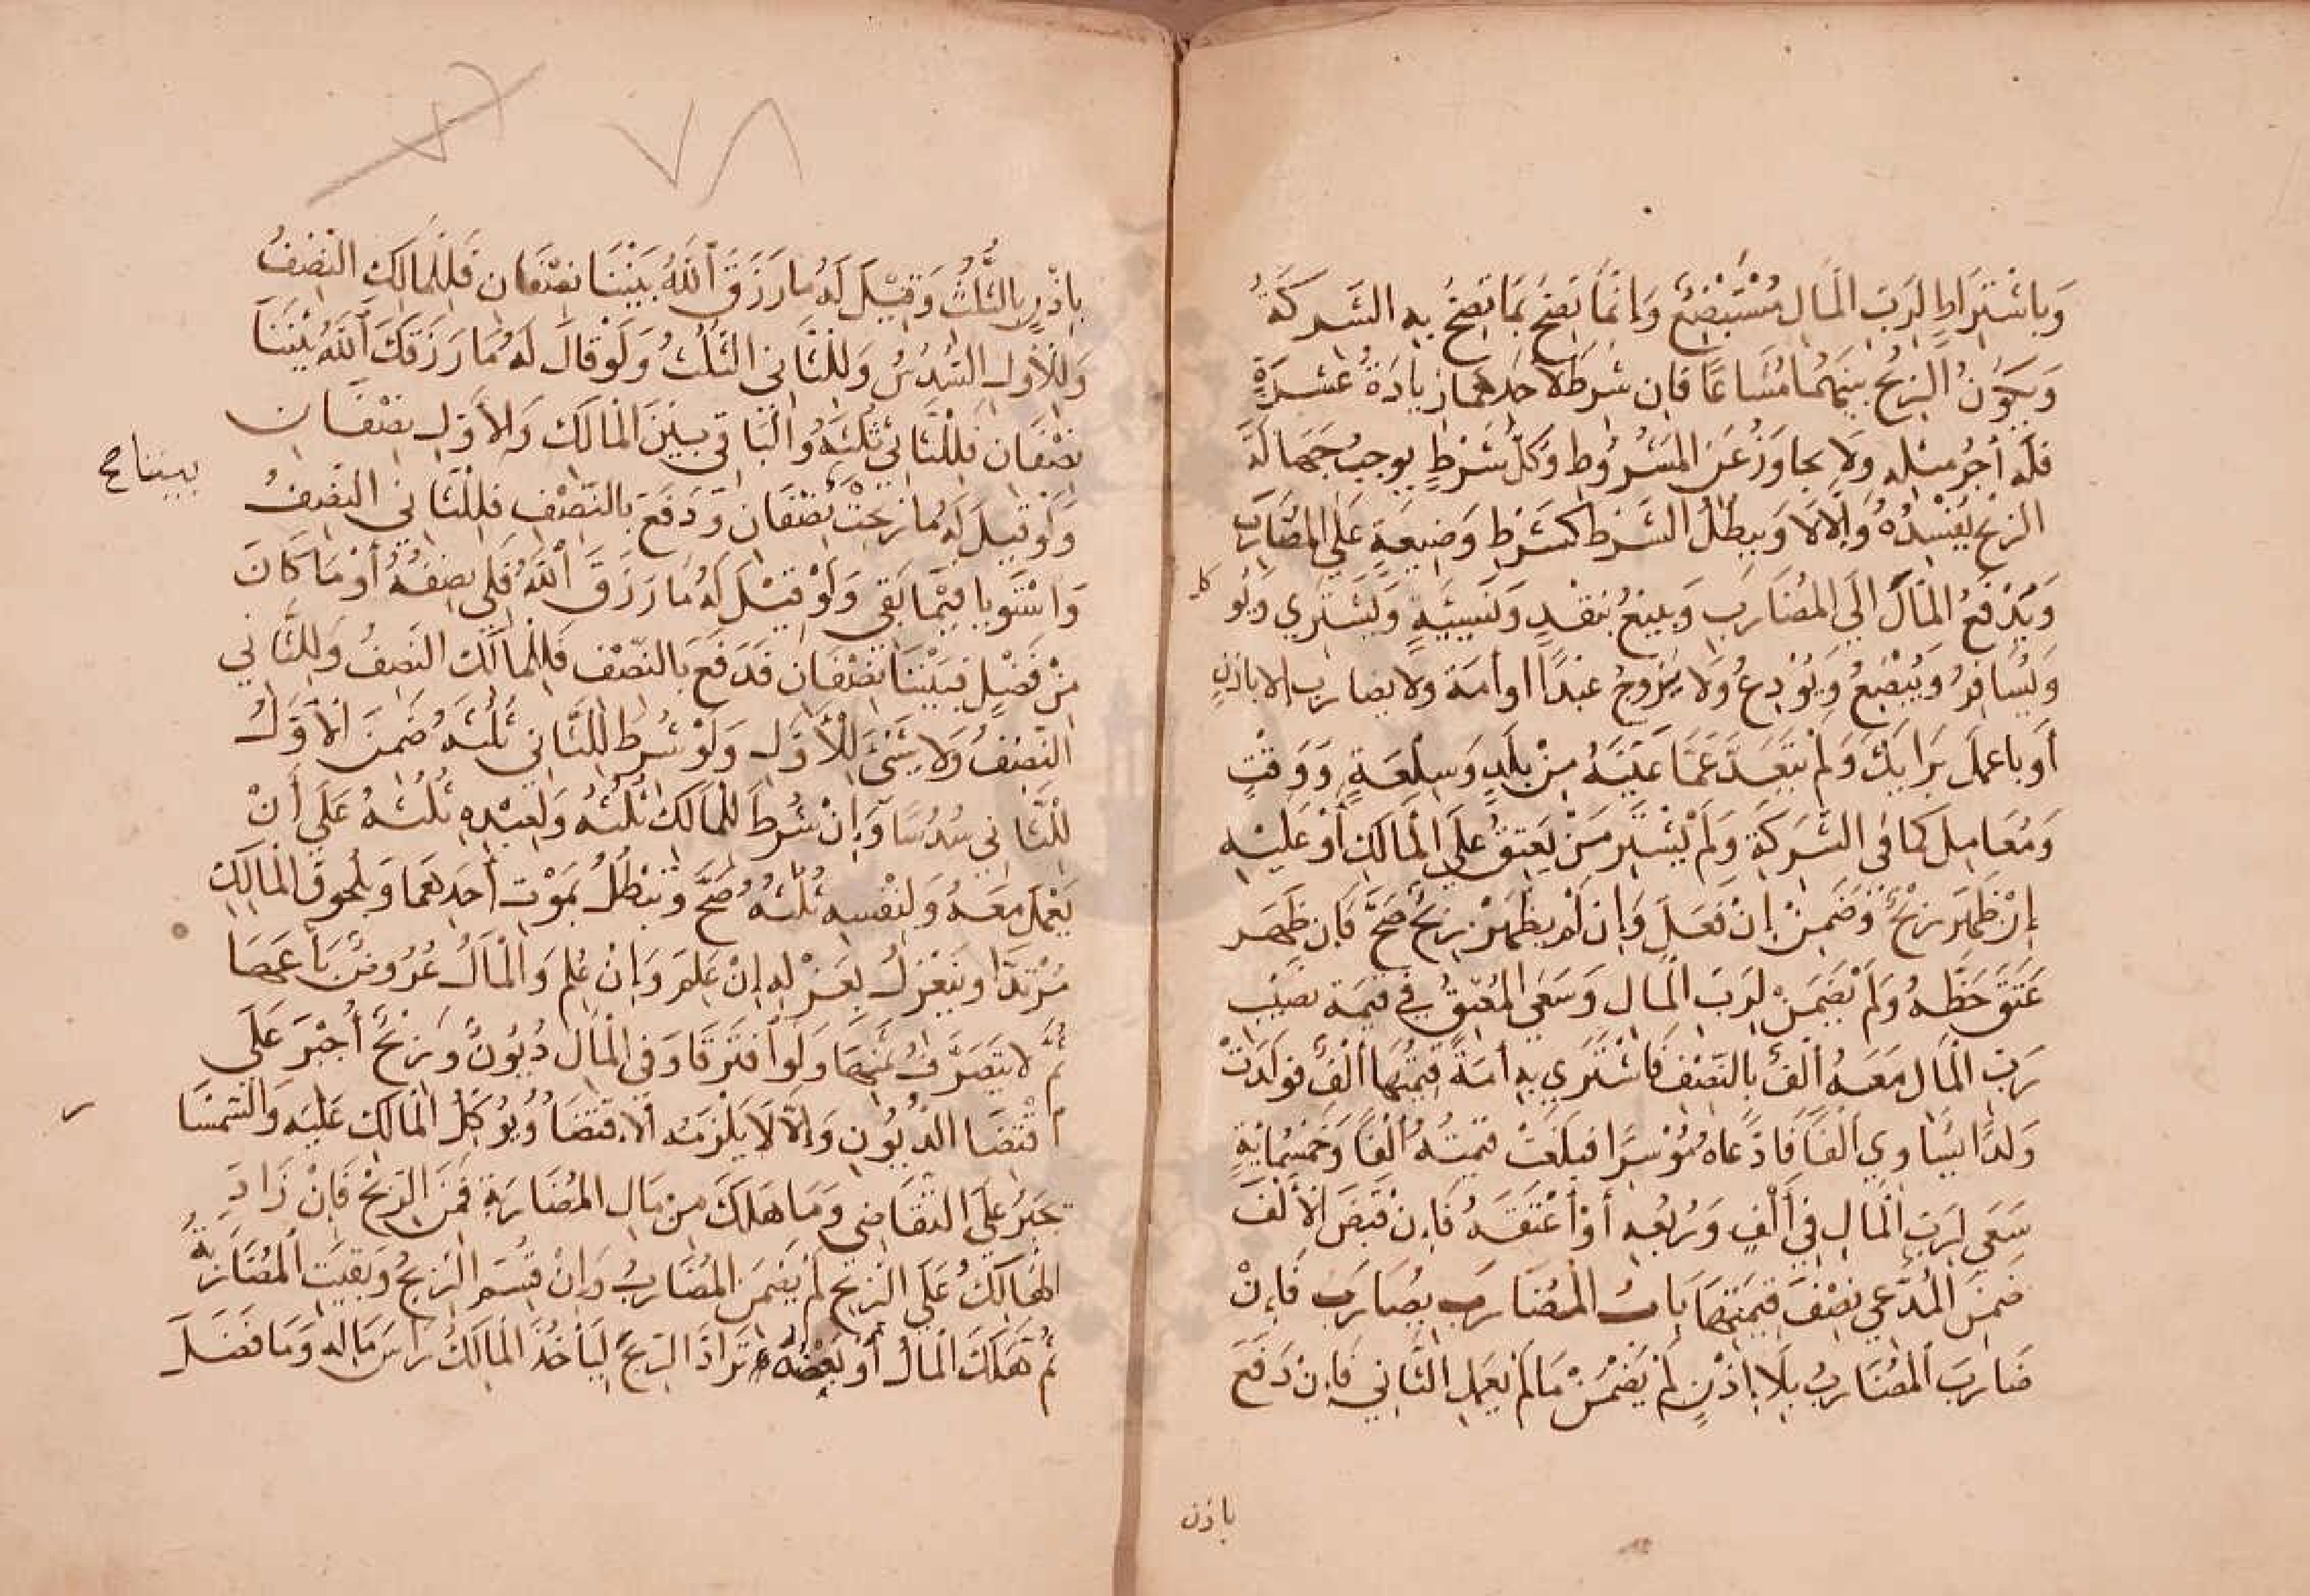 وَبِاشْتِرَاطٍ لِرَبِّ الْمَالِ مُسْتَبْضِعٌ وَإِنَّمَا تَصِحُّ بِمَا تَصِحُّ بِهِ الشَّرِكَةُ
وَيَكُونُ الرِّبْحُ بَيْنَهُمَا مُشَاعًا فَإِن شُرِطَ لِأَحَدِهِمَا زِيَادَةُ عَشَرَةٍ
فَلَهُ أَجْرُ مِثْلِهِ وَلَا يُجَاوَزُ عَنِ الْمَشْرُوطِ وَكُلُّ شَرْطٍ يُوجِبُ جَهَالَةَ
الرِّبْحِ يُفْسِدُهُ وَإِلَّا لَا وَيَبْطُلُ الشَّرْطُ كَشَرْطِ وَضِيعَةٍ عَلَى الْمُضَارِبِ
وَيُدْفَعُ الْمَالُ إِلَى الْمُضَارِبِ وَيَبِيعُ بِنَقْدٍ وَنَسِيئَةٍ وَيَشْتَرِي وَيُوَ
كل
وَيُسَافِرُ وَيُبْضِعُ وَيُودِعُ وَلَا يُزَوِّجُ عَبْدًا أو أَمَةً وَلَا يضارب إلا بإذنٍ
أَو باعمل بَرَأيِكَ وَلَمْ يَتَعَدَّ عَمَّا عَيَّنَهُ مِنْ بَلَدٍ وَسِلْعَةٍ وَوَقْتٍ
وَمُعَامِلٍ كَمَا فِي الشَّرِكَةِ وَلَمْ يَشْتَرِ مَنْ يَعْتِقُ عَلَى الْمَالِكِ أَوْ عَلَيْهِ
إِنْ ظَهَرَ رِبْحٌ وَضَمِنَ إِنْ فَعَلَ وَإِن لَمْ يَظْهَرْ رِبْحٌ صَحَّ فَإِن ظَهَرَ
عَتَقَ حَظُّهُ وَلَمْ يَضْمَنْ لِرَبِّ الْمَالِ وَسَعَى الْمُعْتَقُ فِي قِيمَةِ نَصِيبِ
رَبِّ الْمَالِ مَعَهُ أَلْفٌ بِالنِّصْفِ فَاشْتَرَى بِهِ أَمَةً قِيمَتُهَا أَلْفٌ فَوَلَدَتْ
وَلَدًا يُسَاوِي أَلْفًا فَادَّعَاهُ مُوسِرًا فَبَلَغَتْ قِيمَتُهُ أَلْفًا وَخَمْسَمِائَةٍ
سَعَى لِرَبِّ الْمَالِ فِي أَلْفٍ وَرُبُعِهِ أَوْ أَعْتَقَهُ فَإِنْ قَبَضَ الْأَلْفَ
ضَمِنَ الْمُدَّعِي نِصْفَ قِيمَتِهَا بَابُ الْمُضَارِبِ يُضَارِبُ فَإِنْ
ضَارَبَ الْمُضَارِبُ بِلَا إِذْنٍ لَمْ يَضْمَنْ مَا لَمْ يَعْمَلِ الثَّانِي فَإِنْ دَفَعَ
بإذن
٧٨
بِإِذْنٍ بِالثُّلُثِ وَقِيلَ لَهُ مَا رَزَقَ اللَّهُ بَيْنَنَا نِصْفَانِ فَلِلْمَالِكِ النِّصْفُ
وَلِلْأَوَّلِ السُّدُسُ وَلِلثَّانِي الثُّلُثُ وَلَوْ قَالَ لَهُ مَا رَزَقَكَ اللَّهُ بَيْنَنَا
نِصْفَانِ فَلِلثَّانِي ثُلُثُهُ وَالْبَاقِي بَيْنَ الْمَالِكِ وَالْأَوَّلِ نِصْفَانِ
وَلَوْ قِيلَ لَهُ مَا رَبِحْتَ نِصْفَانِ وَدَفَعَ بِالنِّصْفِ فَلِلثَّانِي النِّصْفُ
بيننا صح
وَاسْتَوَيَا فِيمَا بَقِيَ وَلَوْ قِيلَ لَهُ مَا رَزَقَ اللَّهُ فَلِي نِصْفُهُ أَوْ مَا كَانَ
مِنْ فَضْلٍ فَبَيْنَنَا نِصْفَانِ فَدَفَعَ بِالنِّصْفِ فَلِلْمَالِكِ النِّصْفُ وَلِلثَّانِي
النِّصْفُ وَلَا شَيْءَ لِلْأَوَّلِ وَلَوْ شُرِطَ لِلثَّانِي ثُلُثَيْهِ ضَمِنَ الْأَوَّلُ
لِلثَّانِي سُدُسًا وَإِنْ شُرِطَ لِلْمَالِكِ ثُلُثُهُ وَلِعَبْدِهِ ثُلُثُهُ عَلَى أَنْ
يَعْمَلَ مَعَهُ وَلِنَفْسِهِ ثُلُثُهُ صَحَّ وَتَبْطُلُ بِمَوْتِ أَحَدِهِمَا وَلُحُوقِ الْمَالِكِ
مُرْتَدًّا وَيَنْعَزِلُ بِعَزْلِهِ إِنْ عَلِمَ وَإِنْ عُلِمَ وَالْمَالُ عُرُوضٌ بَاعَهَا
ثُمَّ لَا يَتَصَرَّفُ ثَمَنِهَا وَلَوِ افْتَرَقَا وَفِي الْمَالِ دُيُونٌ وَرِبْحٌ أُجْبِرَ عَلَى
اقْتِضَا الدُّيُونِ وَإِلَّا لَا يَلْزَمُهُ الِاقْتِضَا وَيُوَكِّلُ الْمَالِكَ عَلَيْهِ وَالسِّمْسَا
ر
يُجْبَرُ عَلَى التَّقَاضِي وَمَا هَلَكَ مِنْ مَالِ الْمُضَارَبَةِ فَمِنَ الرِّبْحِ فَإِنْ زَادَ
الْهَالِكُ عَلَى الرِّبْحِ لَمْ يَضْمَنِ الْمُضَارِبُ وَإِنْ قُسِمَ الرِّبْحُ وَبَقِيَتِ الْمُضَارَبَةُ
ثُمَّ هَلَكَ الْمَالُ أَوْ بَعْضُهُ تَرَادَّا الرِّبْحَ لِيَأْخُذَ الْمَالِكُ رَأْسَ مَالِهِ وَمَا فَضَلَ